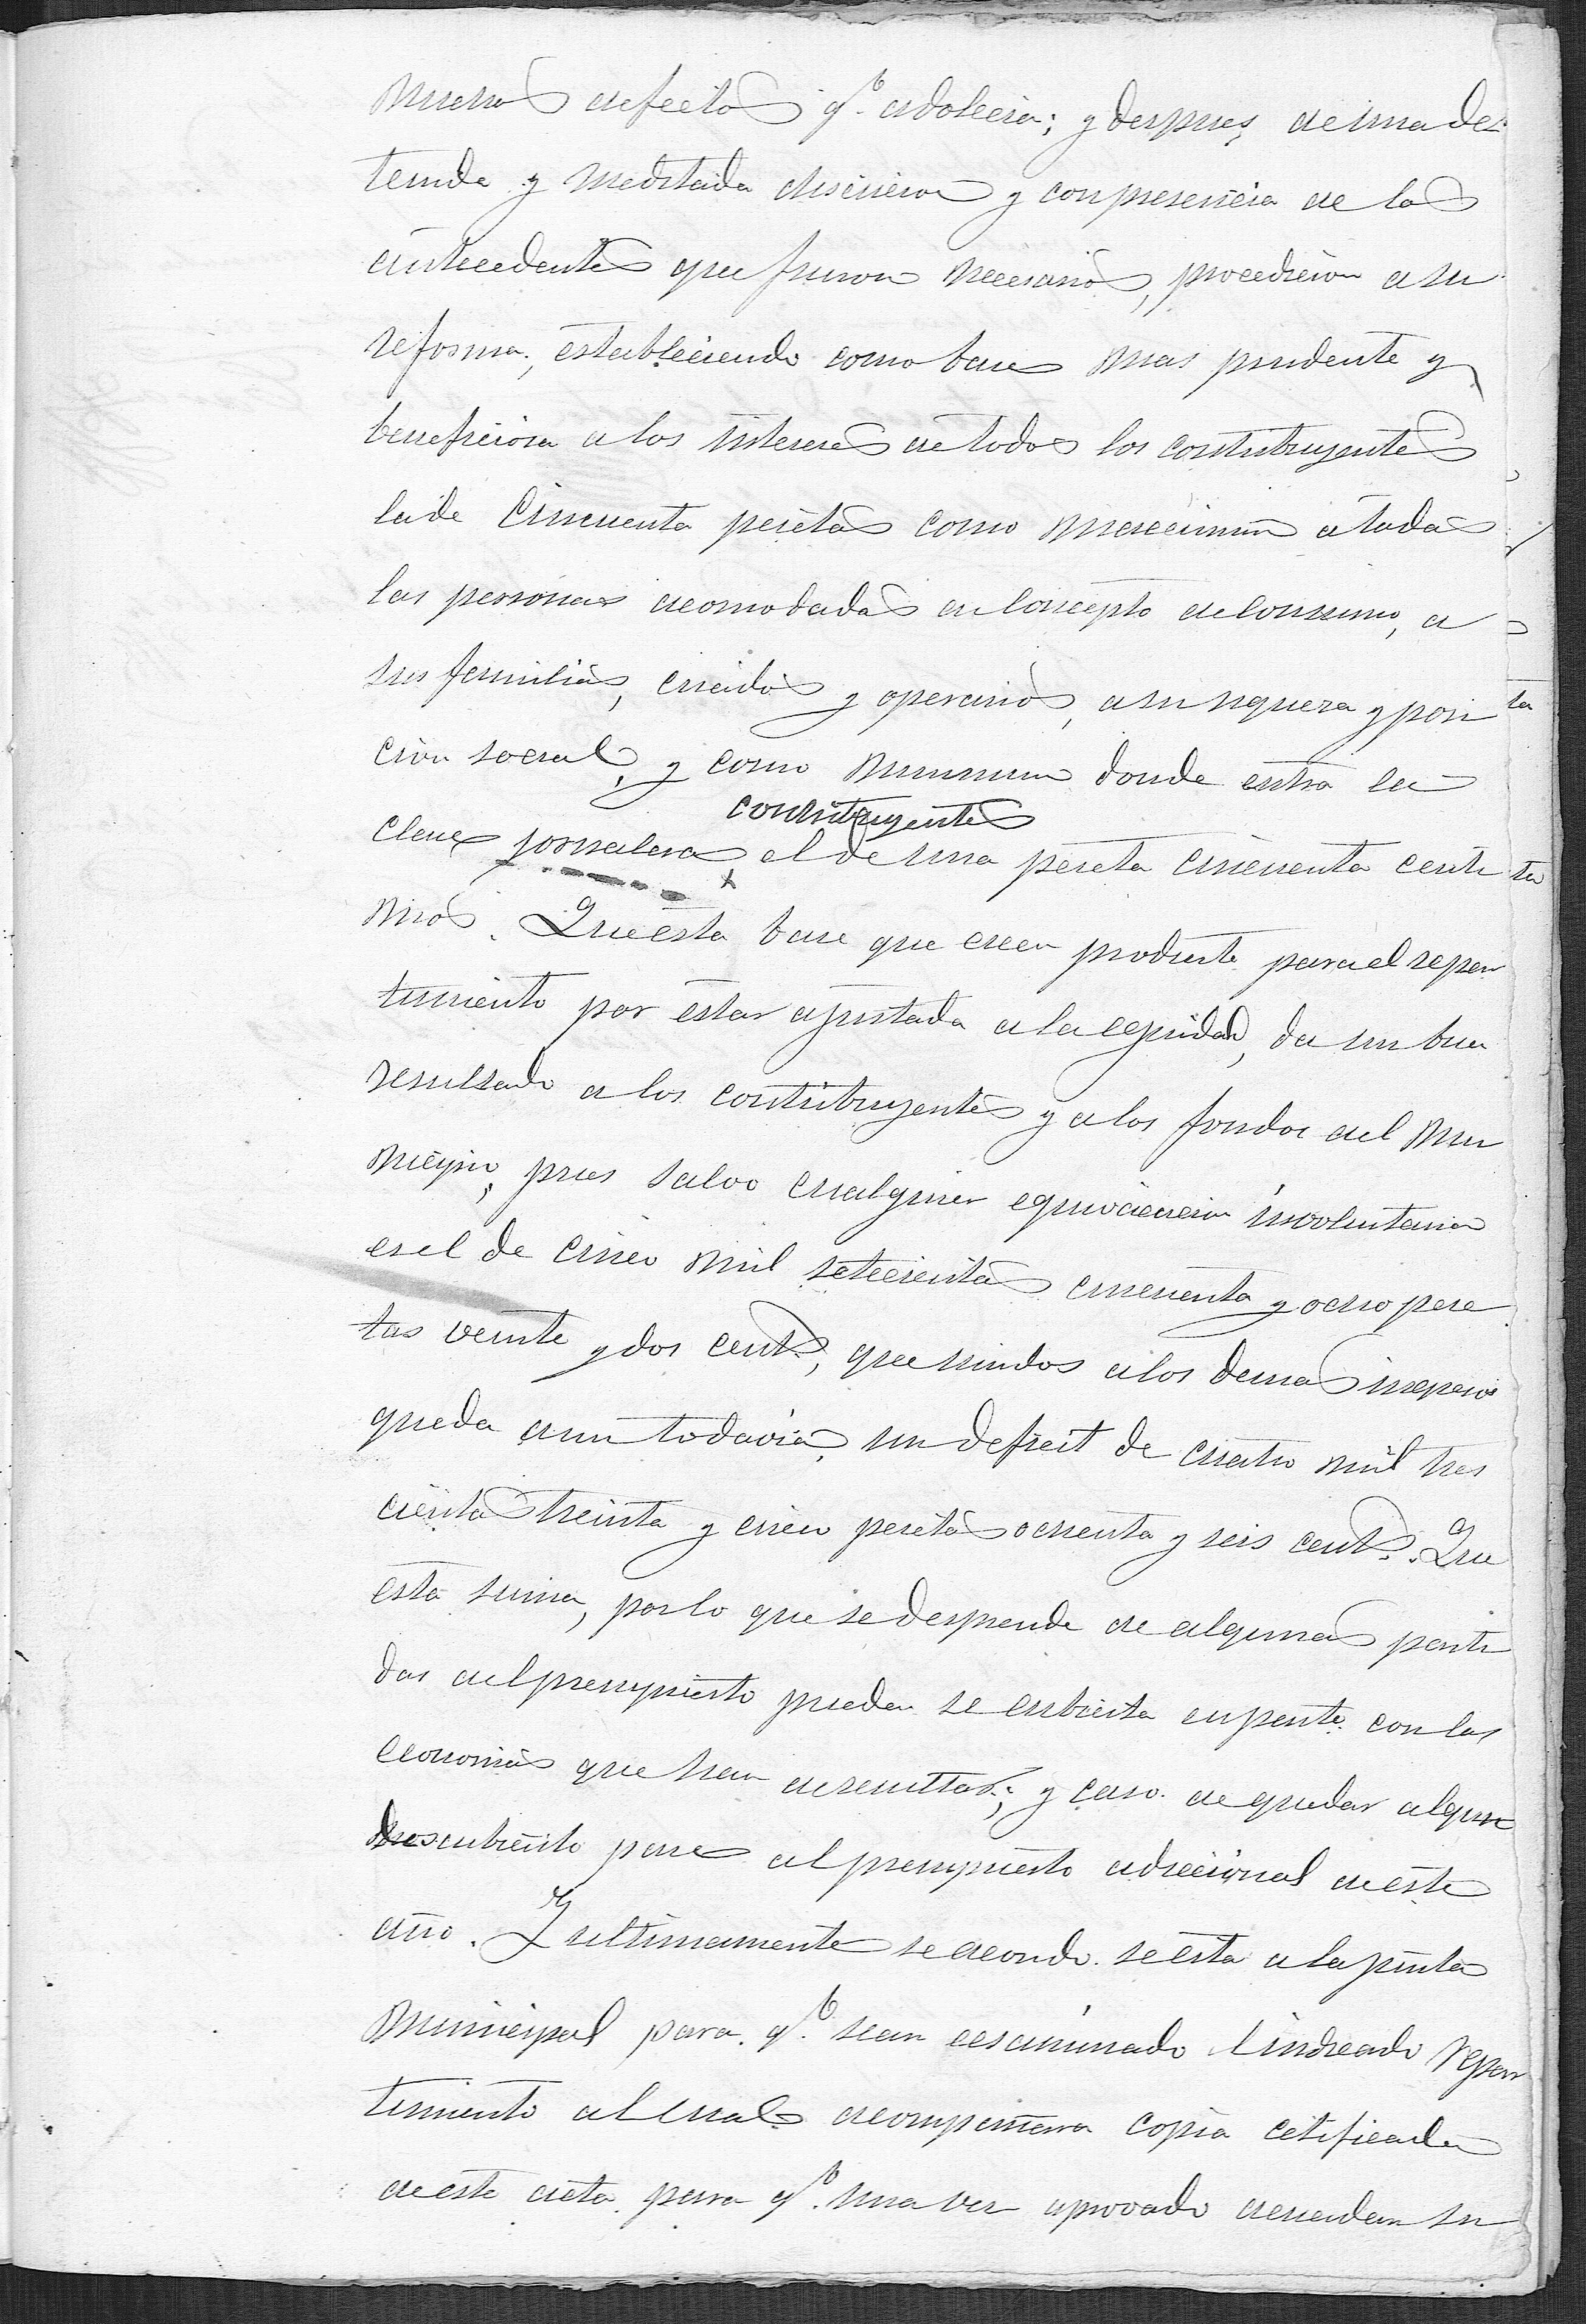 muchos defectos q.e adolecia; y despues, de una de-
tenida y meditada discucion y con presencia de los
antecedentes que fueron necesarios, procedieron a su
reforma, estableciendo como base mas prudente y
beneficiosa a los intereses de todos los contribuyentes
la de Cincuenta pesetas como maxcimun a todas
las personas acomodadas en concepto de consumo, a
sus familias, criados y operarios, a su riqueza y posi
cion social, y como minimun donde entra la
contribuyentes
clase jornalera, el de una peseta cincuenta centi
mos. Que esta base que creen prudente para el repar
timiento por estar ajustada a la equidad, da un buen
resultado a los contribuyentes y a los fondos del Mu
nicipio, pues salvo cualquier equivocacion involuntaria
es el de cinco mil setecientas cincuenta y ocho pese
tas veinte y dos cents, que unidos a los demas ingresos
queda aun todavia, un deficit de cuatro mil tres
cientas treinta y cinco pesetas ochenta y seis cents. Que
esta suma, por lo que se desprende de algunas parti
das del presupuesto puede se cubierta en parte con las
economias que han de resultar; y caso de quedar algun
descubierto pase al presupuesto adiccional de este
año. Y ultimamente se acordo se esta a la junta
Municipal para q.e sean ecsaminado l indicado repar
timiento al cual acompañara copia cetificada
de este acta para q.e una vez aprovado acuerden su